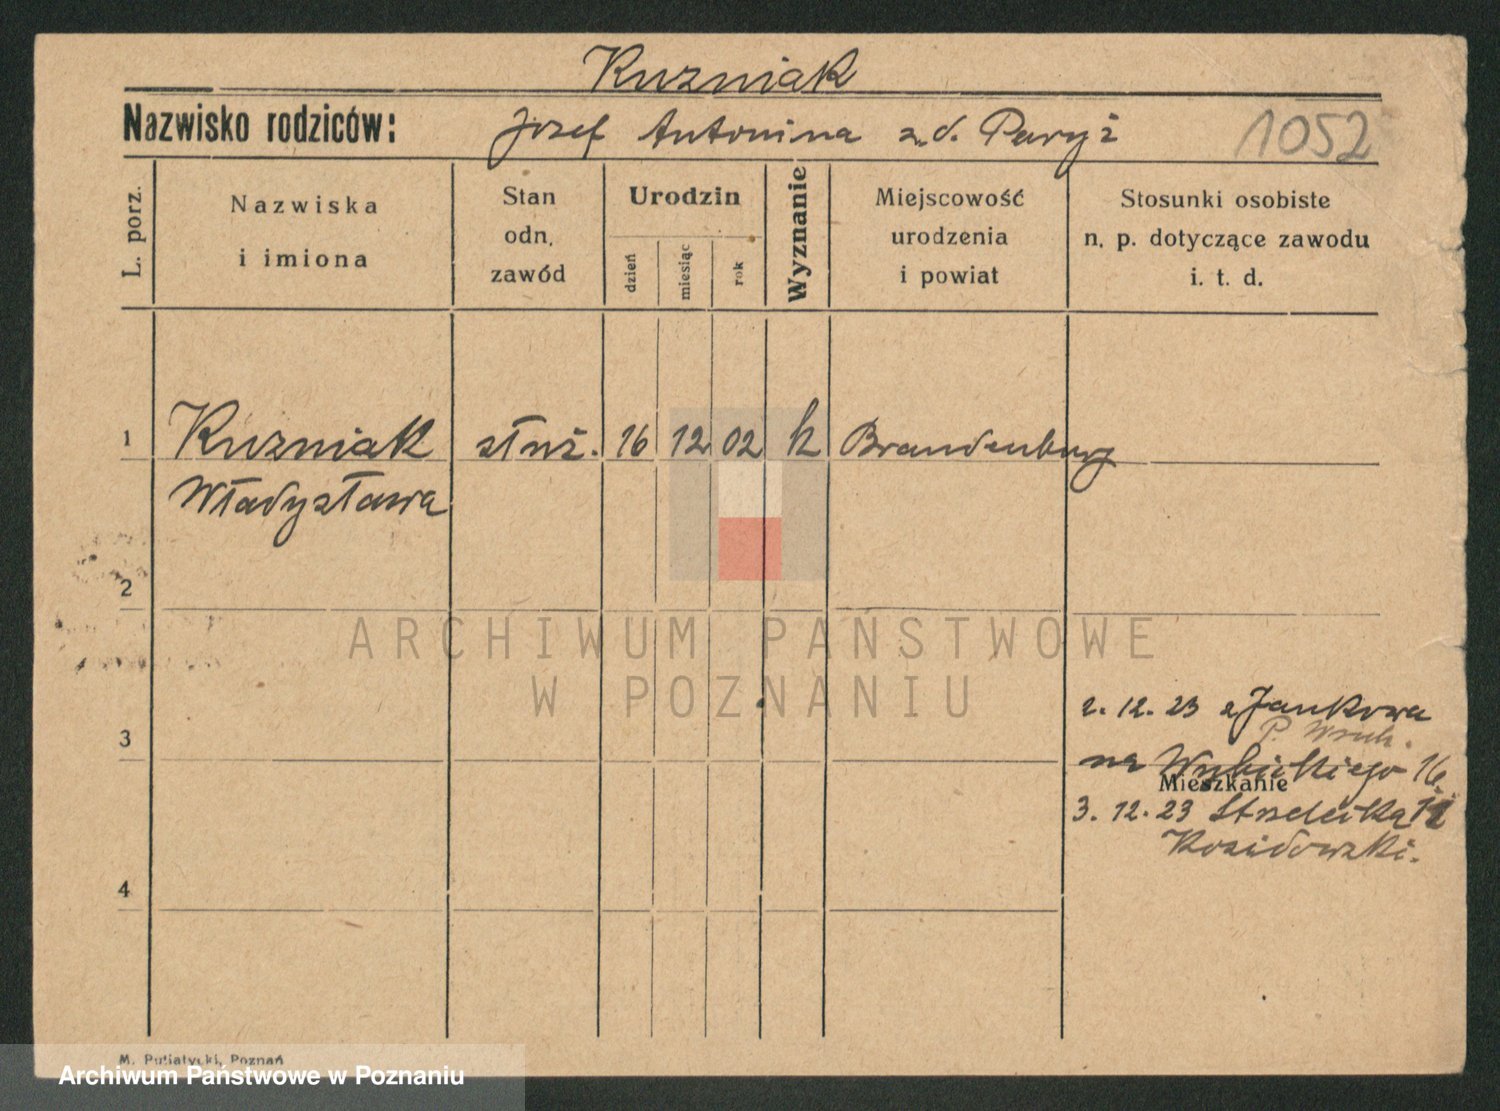 Kuzniak
Nazwisko rodziców: Jozef Antonina z.d. Paryż 1052
L. porz.
Nazwiska
i imiona
Stan
odn.
zawód
Urodzin
dzień
miesiąc
rok
Wyznanie
Miejscowość
urodzenia
i powiat
Stosunki osobiste
n. p. dotyczące zawodu
i. t. d.
1 Kuzniak służ. 16 12 02 k Brandenburg
Władysława
2
ARCHIWUM PAŃSTWOWE
W POZNANIU
2. 12. 23 z Jankowa
3
na Wybickiego 16
Mieszkanie
3. 12. 23 Strzelecka
Kosidowski.
4
M. Putiatycki, Poznań
Archiwum Państwowe w Poznaniu